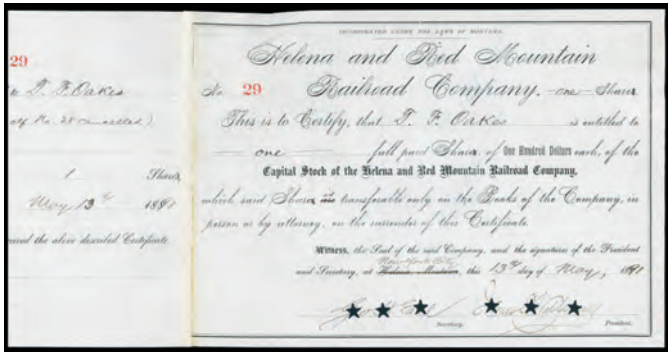 29
T. F. Oakes
of No. 28 cancelled)
1 Shares,
May 13th 1891
the above described Certificate.
INCORPORATED UNDER THE LAWS OF MONTANA.
Helena and Red Mountain
No. 29 Railroad Company. -one- Shares
This is to Certify, that T. F. Oakes is entitled to
one full paid Shares, of One Hundred Dollars each, of the
Capital Stock of the Helena and Red Mountain Railroad Company,
which said Shares are transferable only on the Books of the Company, in
person or by attorney, on the surrender of this Certificate.
Witness, the Seal of the said Company, and the signatures of the President
New York City
and Secretary, at Helena, Montana, this 13th day of May, 1891
Secretary. President.